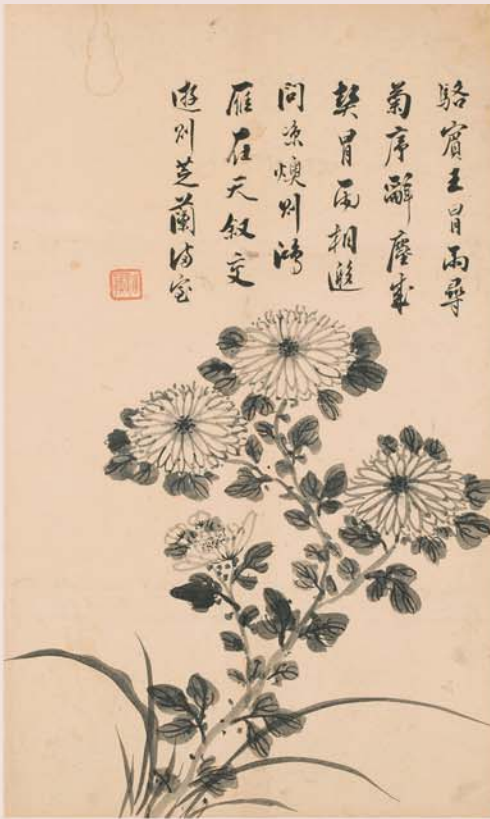 駱賓王冒雨尋
菊序辭塵成
契冒雨相邀
問凉燠則鴻
雁在天叙交
遊則芝蘭滿室